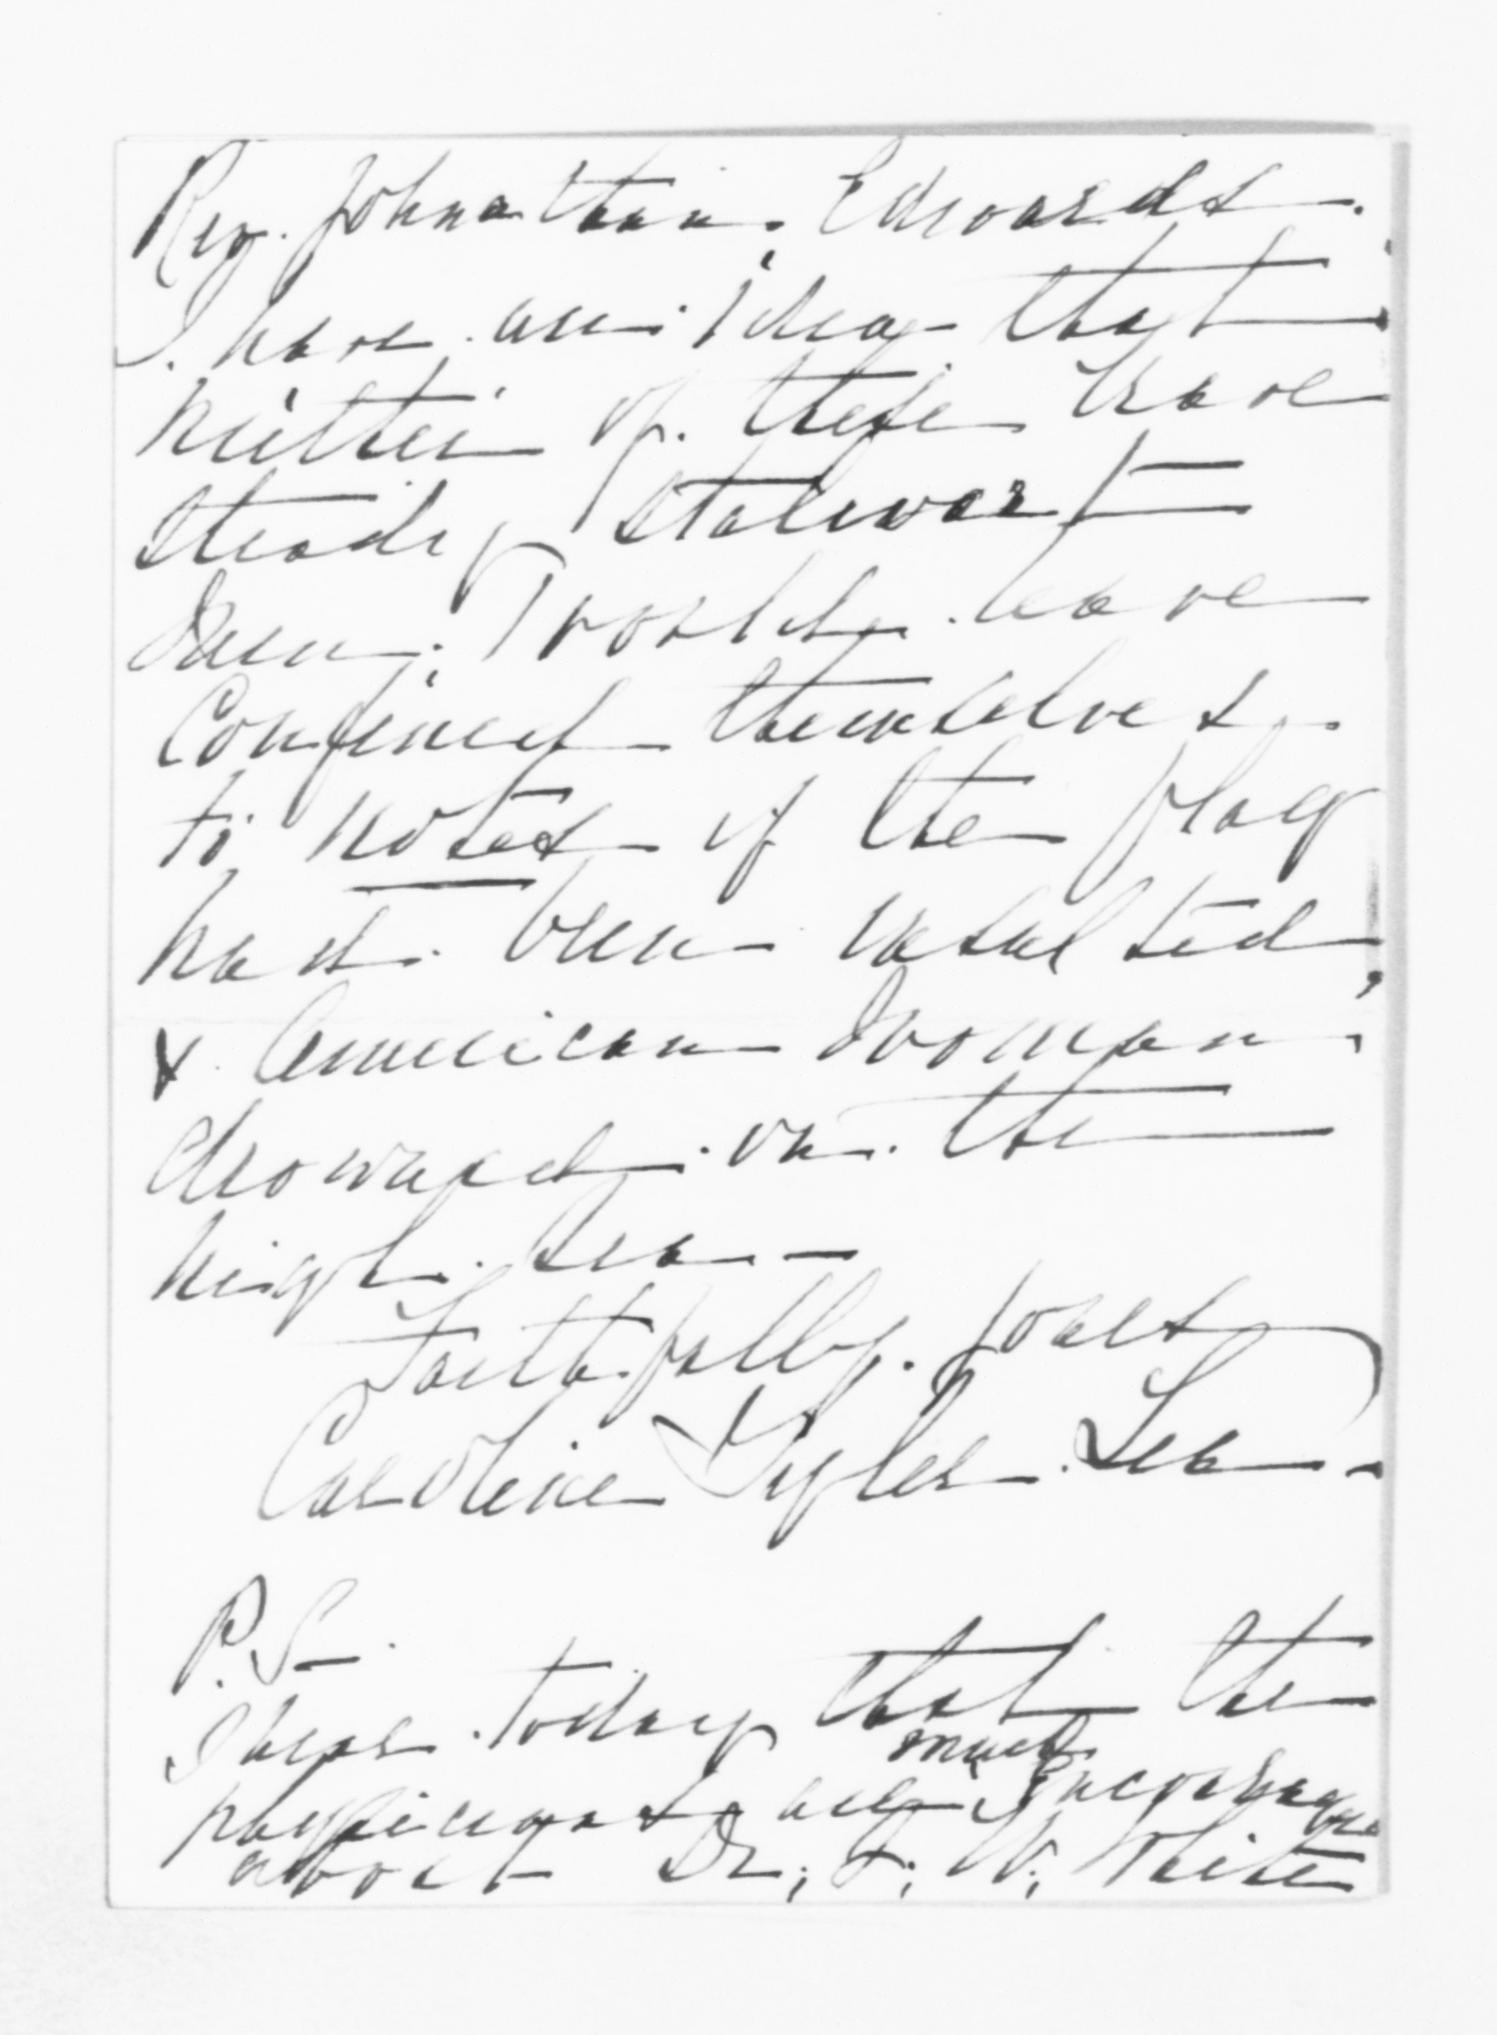 Rev. Johnathan, Edwards.
I have an idea that
neither of these brave
steady, stalwart
men, would have
confined themselves
to notes if the flag
had been insulted,
& American Woman,
drowned on the
high Sea —
Faithfully yours
Caroline Tyler Lea -
P.S —
I hear today that the
physicians are much encouraged
about Dr, J, W, White